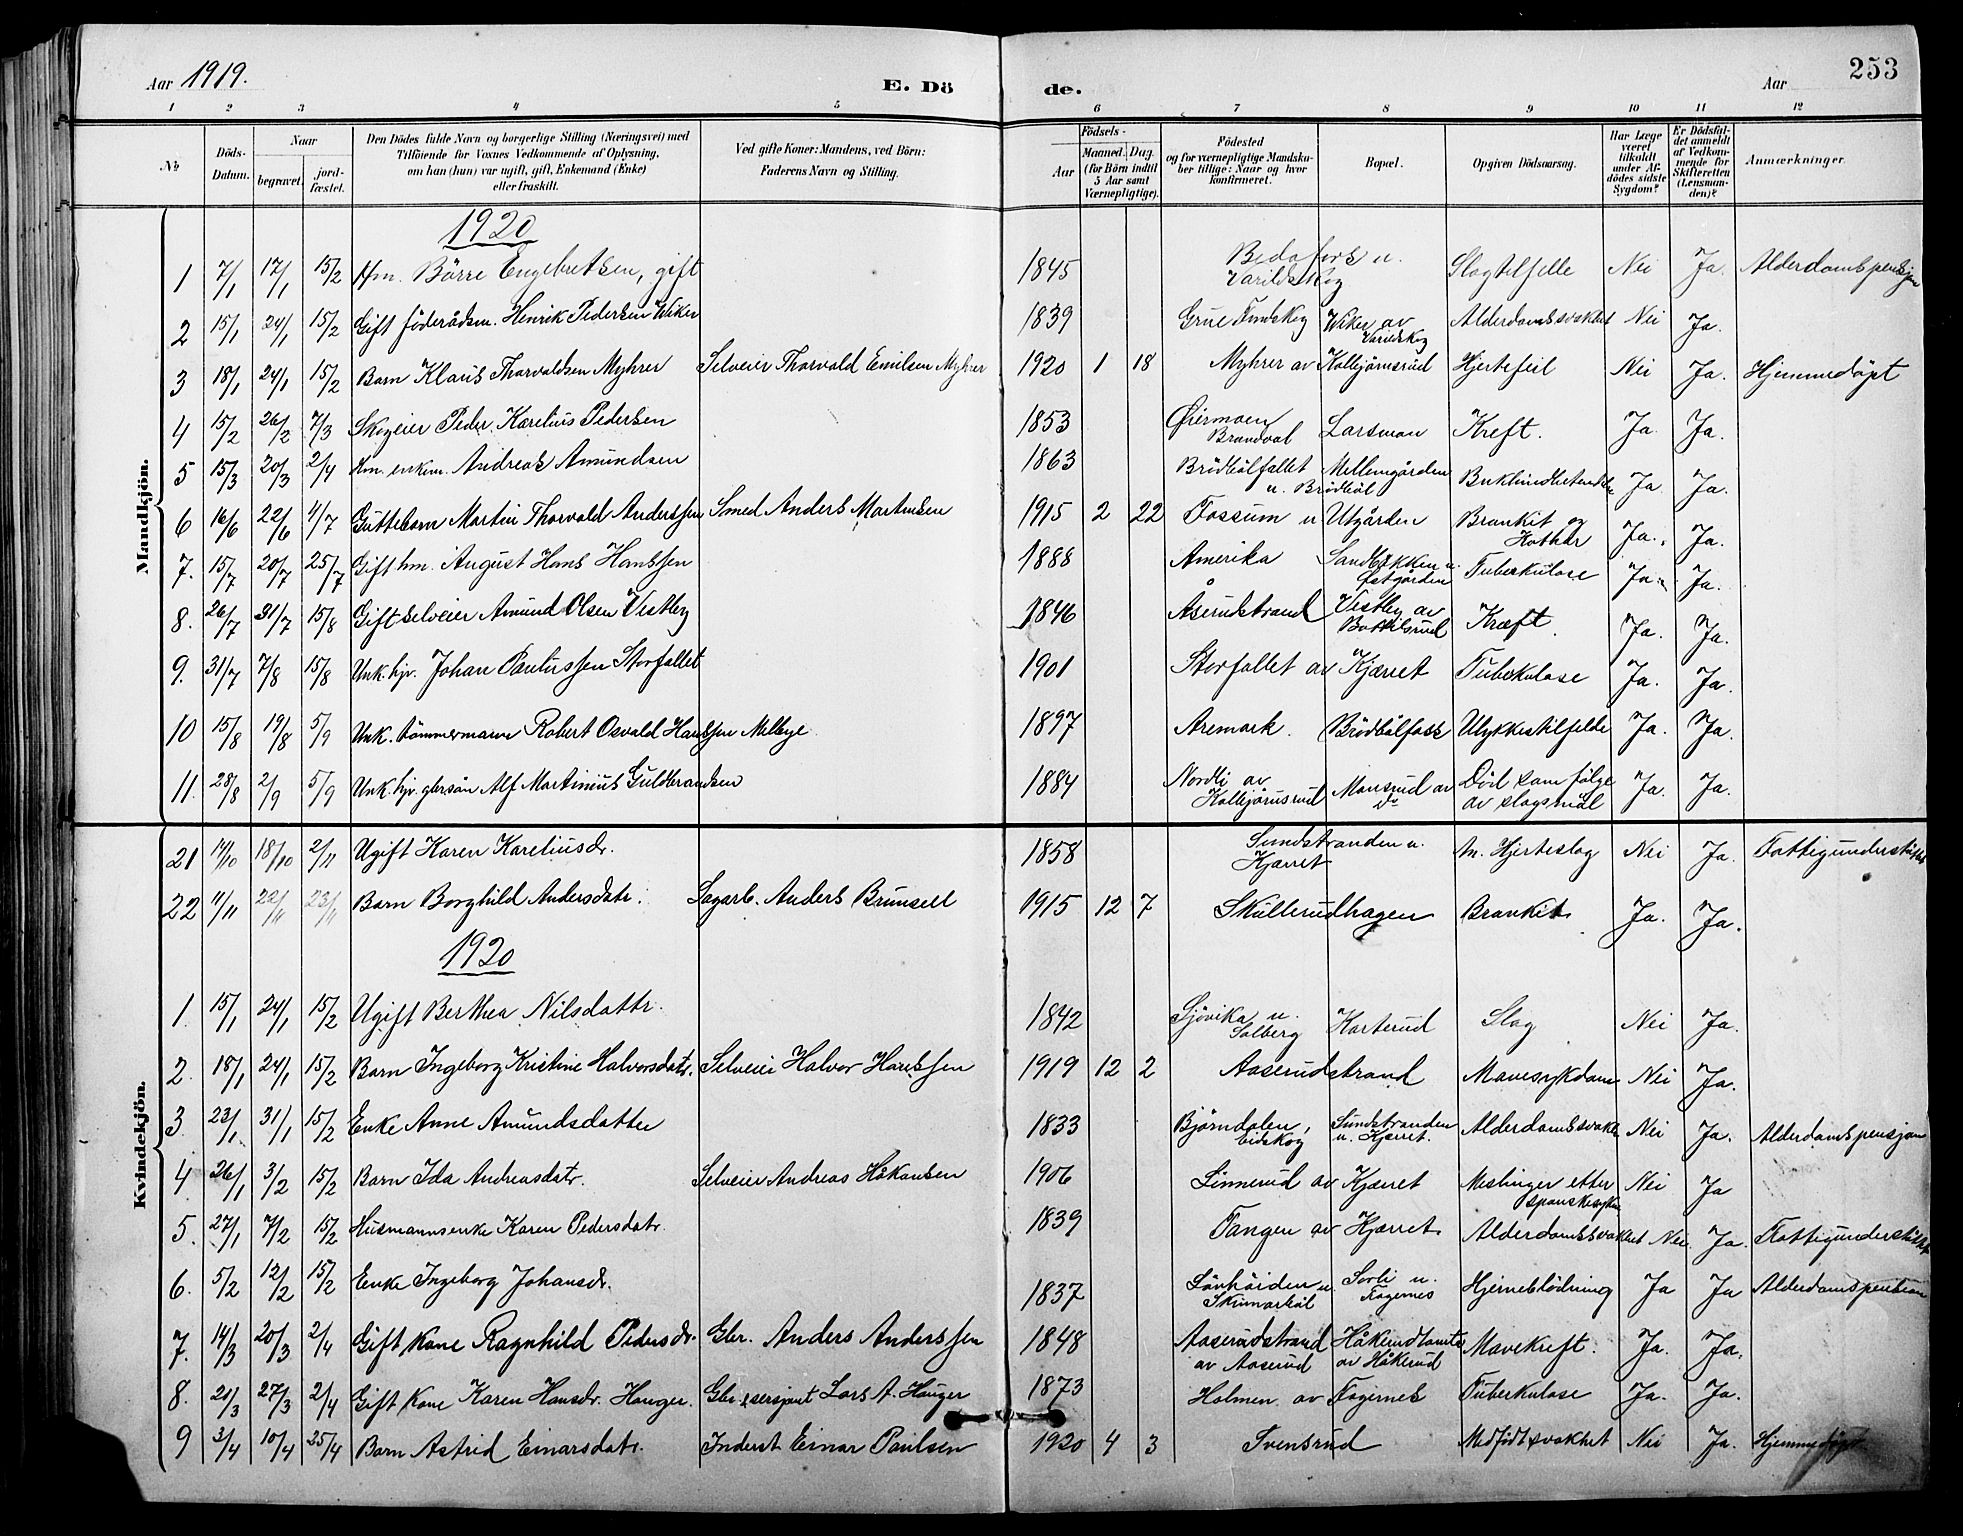 Aar 1919. E. Dö de. Aar 253
1 2 3 4 5 6 7 8 9 10 11 12
No. Döds-Datum. Naar begravet. jord-fæstet. Den Dödes fulde Navn og borgerlige Stilling (Næringsvei) med Tilföiende for Voxnes Vedkommende af Oplysning, om han (hun) var ugift, gift, Enkemand (Enke) eller fraskilt. Ved gifte Koner: Mandens, ved Börn: Faderens Navn og Stilling. Födsels- Aar Maaned. Dag. (for Börn indtil 5 Aar samt Værnepligtige). Födested og for værnepligtige Mandska-ber tillige: Naar og hvor konfirmeret. Bopæl. Opgiven Dödsaarsag. Har Læge været tilkaldt under Af-dödes sidste Sygdom? Er Dödsfal-det anmeldt af Vedkom-mende for Skifteretten (Lensman-den)? Anmærkninger.
Mandkjön.
1920
1 7/1 17/1 15/2 Hm. Börre Engebretsen, gift 1845 u. Varildskog Slagtilfelle Nei Ja. Alderdomspensjon
2 15/1 24/1 15/2 Gift föderådsm. Henrik Pedersen Wiker 1839 Grue Finskog Wiker av Varildskog Alderdomssvakhet Nei Ja.
3 18/1 24/1 15/2 Barn Klaus Thorvaldsen Myhrer Selveier Thorvald Emilsen Myhrer 1920 1 18 Myhrer av Kolbjörnsrud Hjertefeil Nei Ja. Hjemmedøpt
4 15/2 26/2 7/3 Skogeier Peder Karelius Pedersen 1853 Øiermoen Brandval Larsmon Kreft. Ja. Ja.
5 15/3 20/3 2/4 Hm. enkem. Andreas Amundsen 1863 Brödbölfallet u. Brödböl Mellemgården Ja Ja.
6 16/6 22/6 4/7 Guttebarn Martin Thorvald Anderssen Smed Anders Martinsen 1915 2 22 Fossum u Utgården Bronkit og Ja. Ja.
7. 15/7 20/7 25/7 Gift hm. August Hans Hanssen 1888 Amerika Sandbakken u. Østgården Tuberkulose Ja. Ja.
8. 26/7 31/7 15/8 Gift selveier Amund Olsen Vestby 1846 Åserudstrand Vestby av Bottilsrud Kræft. Ja. Ja.
9. 31/7 7/8 15/8 Unk. hjv. Johan Paulussen Storfallet 1901 Storfallet av Kjærret Tuberkulose Ja. Ja.
10 15/8 19/8 5/9 Unk. tömmermann Robert Osvald Hanssen Melbye. 1897 Aremark. Brödbölfoss Ulykkestilfelde Ja. Ja.
11. 28/8 2/9 5/9 Unk. hjv. gbrsön Alf Martinius Guldbrandsen 1884 Nordli av Kolbjörnsrud Monsrud av do Död som fölge av slagsmål Ja. Ja.
21 14/10 18/10 2/11 Ugift Karen Kareliusdr. 1858 Sundstranden u. Kjærret An. Hjerteslag Nei Ja. Fattigunderstöttet
22 11/11 22/11 23/11 Barn Borghild Andersdatr. Sagarb. Anders Brunsell 1915 12 7 Skullerudhagen Bronkit Ja. Ja.
Kvindekjön.
1920
1. 15/1 24/1 15/2 Ugift Berthea Nilsdattr. 1842 Sjövika u. Solberg Karterud Slag Nei Ja.
2. 18/1 24/1 15/2 Barn Ingeborg Kristine Halvorsdatr. Selveier Halvor Hanssen 1919 12 2 Aaserudstrand Mavesykdom Nei Ja.
3. 23/1 31/1 15/2 Enke Anne Amundsdatter 1833 Björndalen, Eidskog Sundstranden u. Kjærret. Alderdomssvakh Nei Ja. Alderdomspensjon
4. 26/1 3/2 15/2 Barn Ida Andreasdatr. Selveier Andreas Håkonsen 1906 Linnerud av Kjærret Meslinger etter spanskesyken Nei Ja
5. 27/1 7/2 15/2 Husmannsenke Karen Pedersdatr. 1839 Tangen av Kjærret Alderdomssvakhet Nei Ja. Fattigunderstöttet
6. 5/2 12/2 15/2 Enke Ingeborg Johansdr. 1837 Lövhöiden u. Skinnarböl Sorli u. Fagernes Hjerneblödning Ja Ja Alderdomspension
7. 14/3 20/3 2/4 Gift kone Ragnhild Pedersdr. Gbr. Anders Anderssen 1848 Aaserudstrand av Aaserud Håkerudtomta av Håkerud Mavekreft. Ja. Ja.
8. 21/3 27/3 2/4 Gift kone Karen Hansdr. Hauger. Gbr. sersjant Lars A. Hauger 1873 Holmen av Fagernes Tuberkulose Ja. Ja.
9 3/4 10/4 25/4 Barn Astrid Einarsdatr. Inderst Einar Paulsen 1920 4 3 Svensrud Medfödt svakhet Nei Ja. Hjemmedöpt